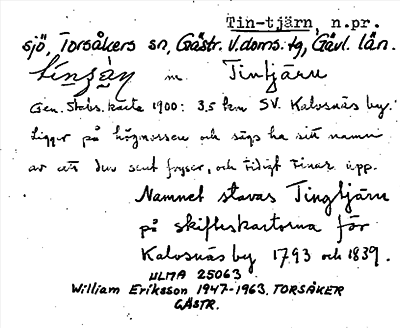 Tin-tjärn, n.pr.
sjö, Torsåkers sn, Gästr. V.doms. tg, Gävl. län.
m. Tintjärn
Gen. Stabs. karta 1900: 3.5 km SV. Kalvsnäs by.
Ligger på högmossen och sägs ha sitt namn
av att den sent fryser, och tidigt tinar upp.
Namnet stavas Tingtjärn
på skifteskartorna för
Kalvsnäs by 1793 och 1839.
ULMA 25063
William Eriksson 1947-1963. TORSÅKER
GÄSTR.